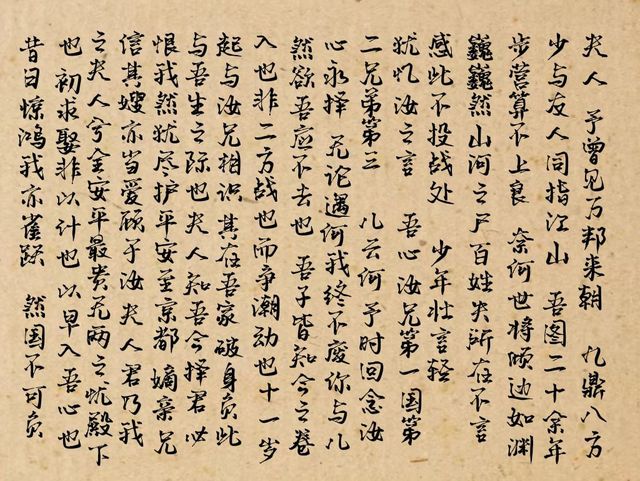 夫人 予曾见万邦来朝 九鼎八方
少与友人同指江山 吾图二十余年
步营算不上良 奈何世将倾迹如渊
巍巍然山河之尸百姓失所在不言
感此不投战处 少年壮言轻
犹忆汝之言 吾心汝兄第一国第
二兄弟第三 儿云何予时回念汝
心永择 无论遇何我终不废你与儿
然欲吾应不去也 吾子皆知今之卷
入也非二方战也而争潮动也十一岁
起与汝兄相识其在吾家破身负此
与吾生之际也夫人知吾今择君必
恨我然犹尽护平安至京都嫡亲兄
信其嫂亦当爱顾予汝夫人君乃我
之夫人兮金安平最贵无两之忧殿下
也初求娶非以计也以早入吾心也
昔日惊鸿我亦雀跃 然国不可负